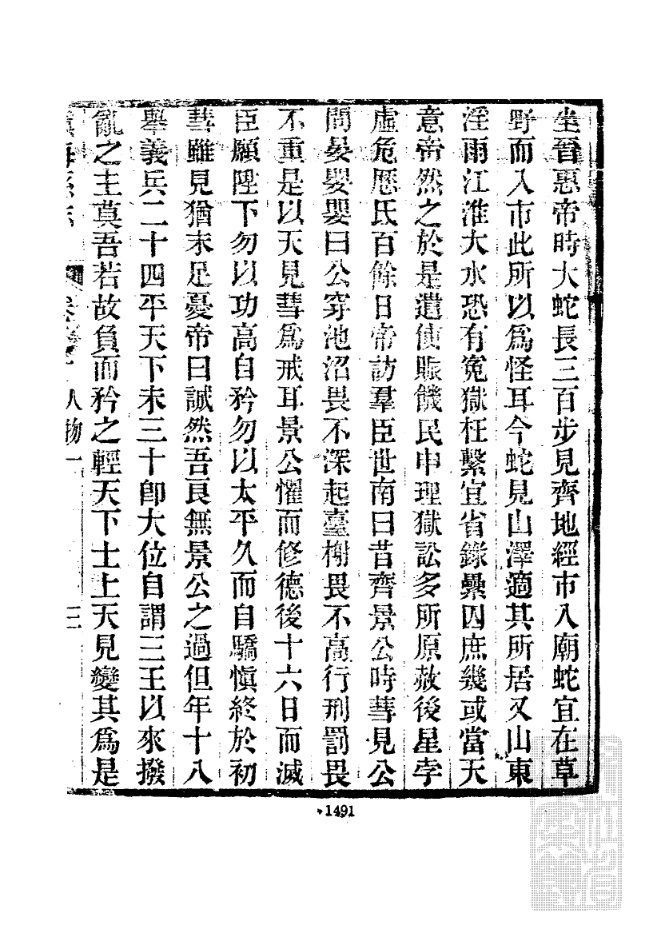 坐晉惠帝時大蛇長三百步見齊地經市入廟蛇宜在草
野而入市此所以爲怪耳今蛇見山澤適其所居又山東
淫雨江淮大水恐有冤獄枉繫宜省錄纍囚庶幾或當天
意帝然之於是遣使賑饑民申理獄訟多所原赦後星孛
虛危歷氐百餘日帝訪羣臣世南曰昔齊景公時彗見公
問晏嬰嬰曰公穿池沼畏不深起臺榭畏不高行刑罰畏
不重是以天見彗爲戒耳景公懼而修德後十六日而滅
臣願陛下勿以功高自矜勿以太平久而自驕愼終於初
彗雖見猶未足憂帝曰誠然吾良無景公之過但年十八
舉義兵二十四平天下未三十卽大位自謂三王以來撥
亂之主莫吾若故負而矜之輕天下士上天見變其爲是
人物一
三
1491